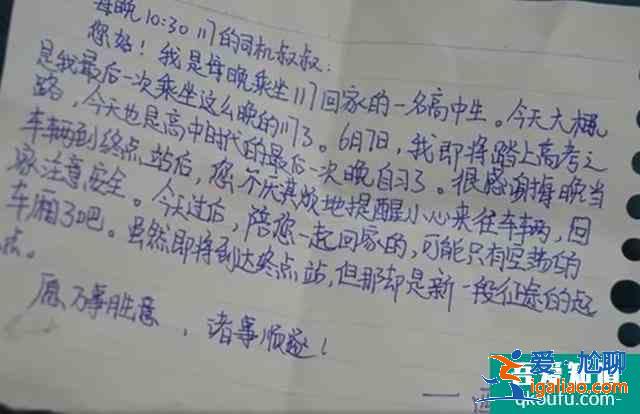 每晚10:30 117的司机叔叔:
您好!我是每晚乘坐117回家的一名高中生。今天大概
是我最后一次乘坐这么晚的117了。6月7日,我即将踏上高考之
路,今天也是高中时代的最后一次晚自习了。很感谢每晚当
车辆到终点站后,您不厌其烦地提醒小心来往车辆,回
家注意安全。今天过后,陪您一起回家的,可能只有空荡的
车厢了吧。虽然即将到达终点站,但那却是新一段征途的起
点。
愿万事胜意,诸事顺遂!
爱尬聊
jigaliao.com
qksufu.com